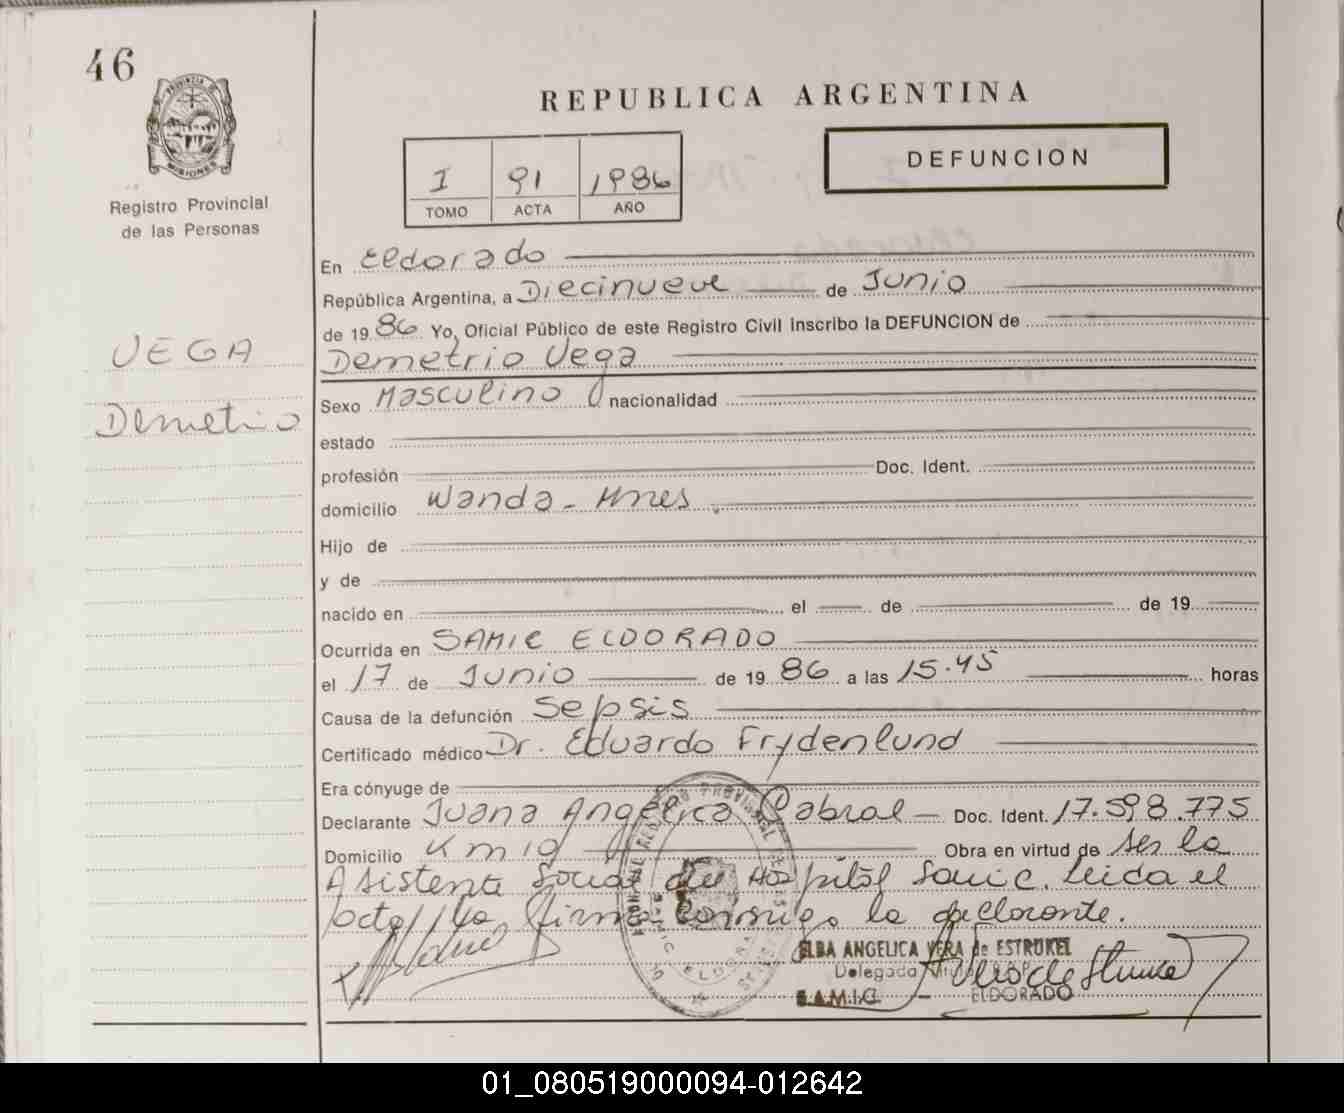 46
PROVINCIA DE
MISIONES
Registro Provincial
de las Personas
VEGA
Demetrio
REPUBLICA ARGENTINA
I 91 1986
TOMO ACTA AÑO
DEFUNCION
En Eldorado
República Argentina, a Diecinueve de Junio
de 19 86 Yo, Oficial Público de este Registro Civil Inscribo la DEFUNCION de
Demetrio Vega
Sexo Masculino nacionalidad
estado
profesión Doc. Ident.
domicilio Wanda - Mnes
Hijo de
y de
nacido en el de de 19
Ocurrida en SAMIC ELDORADO
el 17 de Junio de 19 86 a las 15.45 horas
Causa de la defunción Sepsis
Certificado médico Dr. Eduardo Frydenlund
Era cónyuge de
Declarante Juana Angélica Cabral Doc. Ident. 17.598.775
Domicilio Km 10 Obra en virtud de ser la
Asistente Social del Hospital Samic. Leida el
acta, la firma conmigo la declarante.
ELBA ANGELICA VERA de ESTRUKEL
Delegada
S.A.M.I.C. - ELDORADO
01_080519000094-012642